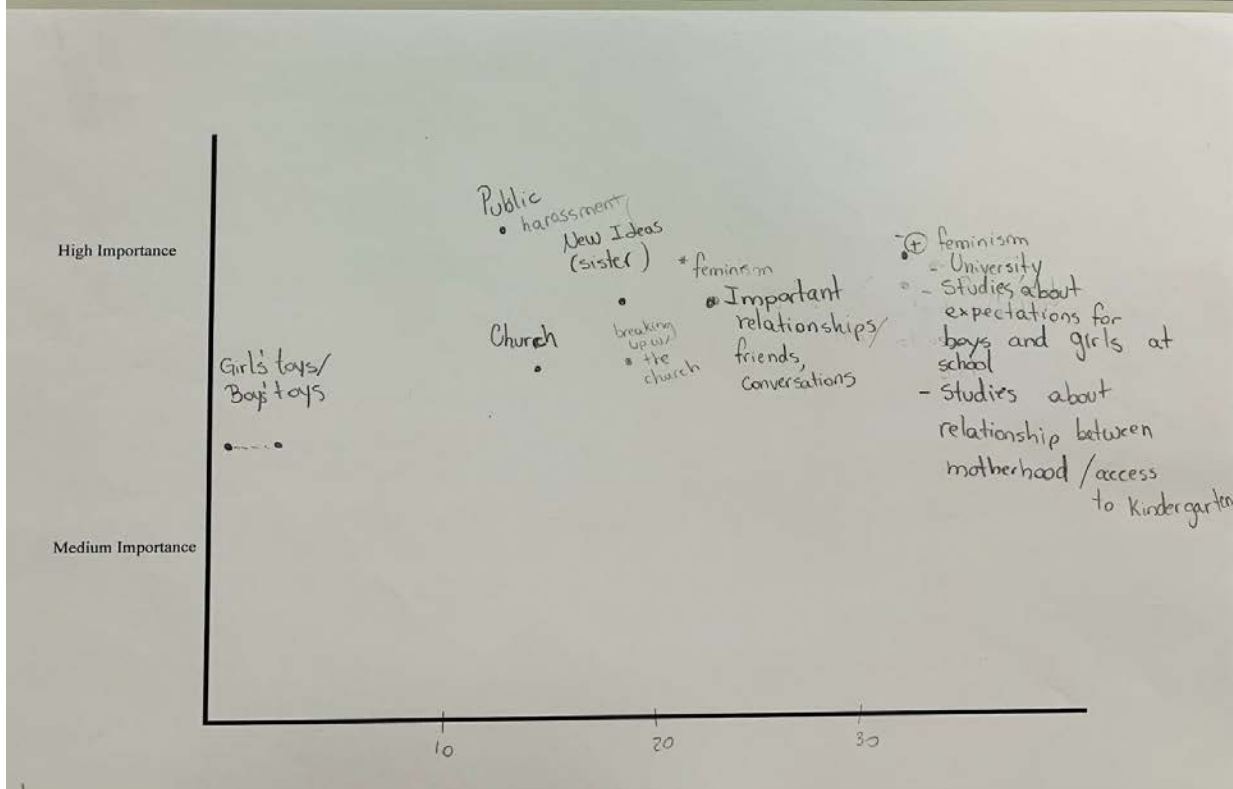 High Importance
Medium Importance
Girl's toys/
Boys' toys
Public
harassment/
New Ideas
(sister)
Church
breaking
up w/
the
church
* feminism
Important
relationships/
friends,
conversations
- + feminism
- University
- Studies about
expectations for
boys and girls at
school
- Studies about
relationship between
motherhood / access
to Kindergarten
10
20
30